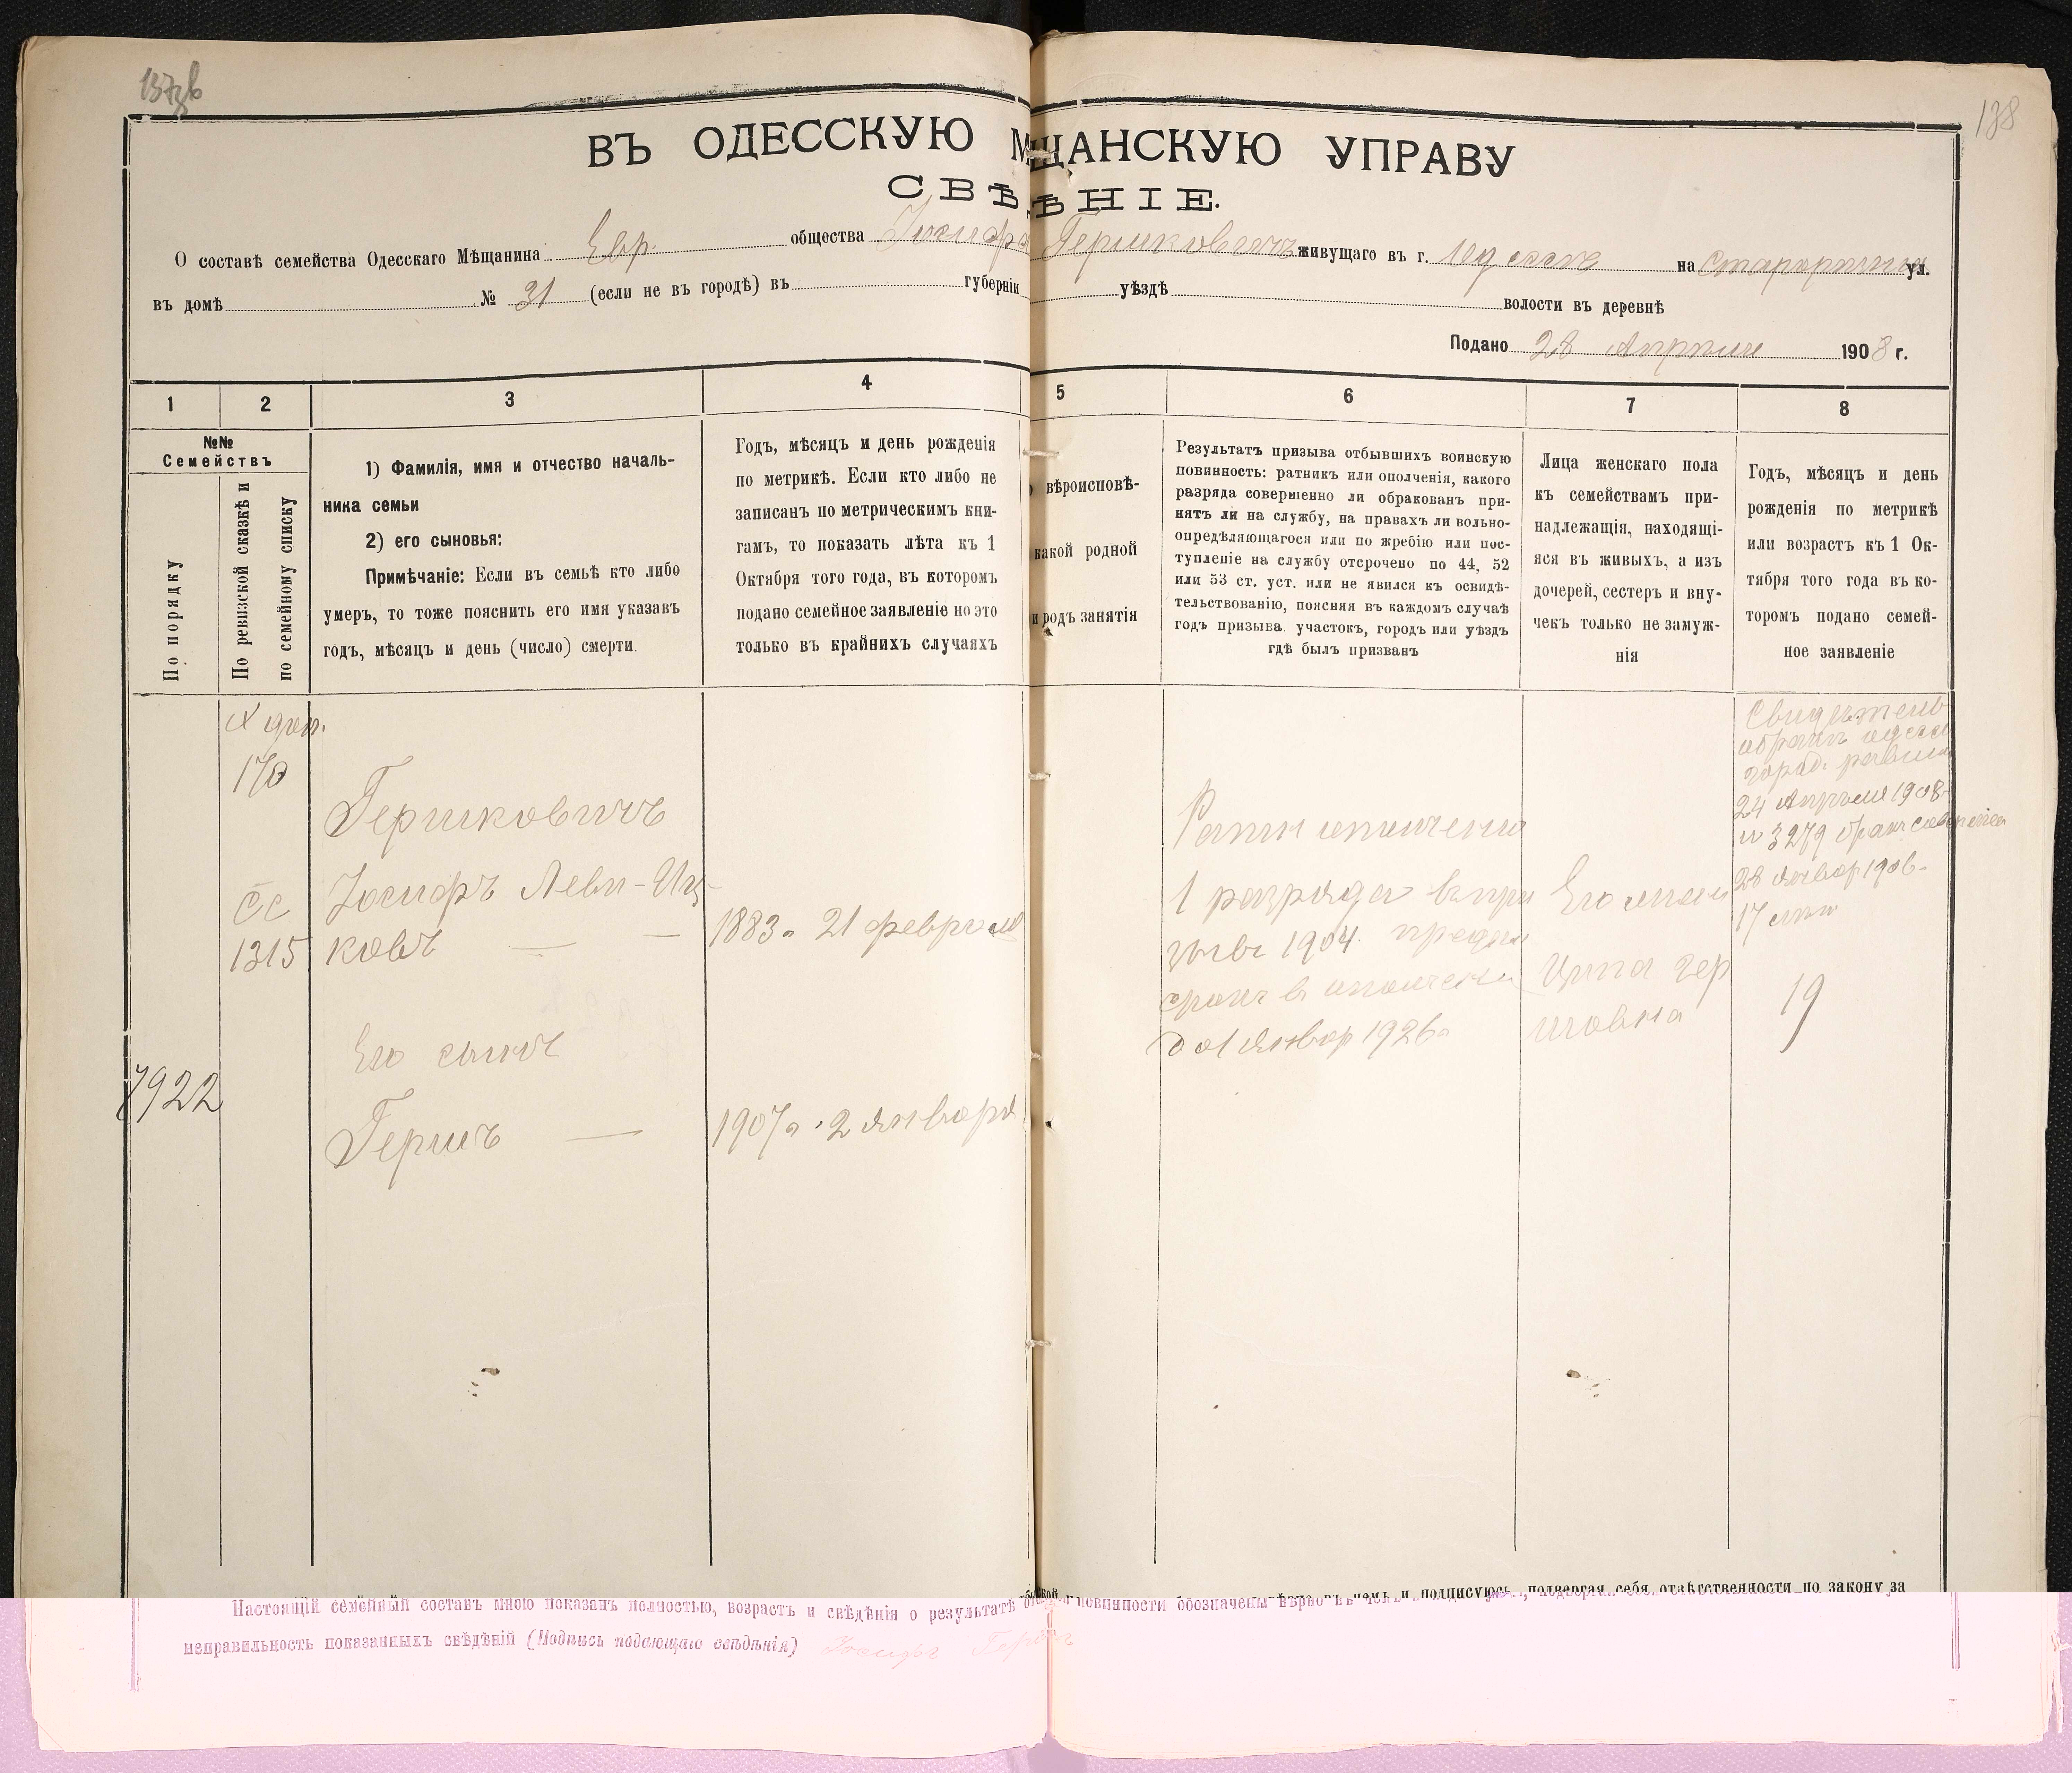 138
ВЪ ОДЕССКУЮ М ЩАНСКУЮ УПРАВУ
СВѢ ѢНІЕ.
О составѣ семейства Одесскаго Мѣщанина Евр. общества Іосифа Гершковичъ живущаго въ г. Одессѣ на ул.
въ домѣ № 31 (если не въ городѣ) въ губерніи уѣздѣ волости въ деревнѣ
Подано 28 Апрѣля 1908 г.
1 2 3 4 5 6 7 8
№№
Семействъ
По порядку
По ревизской сказкѣ и
по семейному списку
1) Фамилія, имя и отчество началь-
ника семьи
2) его сыновья:
Примѣчаніе: Если въ семьѣ кто либо
умеръ, то тоже пояснить его имя указавъ
годъ, мѣсяцъ и день (число) смерти.
Годъ, мѣсяцъ и день рожденія
по метрикѣ. Если кто либо не
записанъ по метрическимъ кни-
гамъ, то показать лѣта къ 1
Октября того года, въ которомъ
подано семейное заявленіе но это
только въ крайнихъ случаяхъ
вѣроисповѣ-
какой родной
и родъ занятія
Результатъ призыва отбывшихъ воинскую
повинность: ратникъ или ополченія, какого
разряда совершенно ли обракованъ при-
нятъ ли на службу, на правахъ ли вольно-
опредѣляющагося или по жребію или пос-
тупленіе на службу отсрочено по 44, 52
или 53 ст. уст. или не явился къ освидѣ-
тельствованію, поясняя въ каждомъ случаѣ
годъ призыва. участокъ, городъ или уѣздъ
гдѣ былъ призванъ
Лица женскаго пола
къ семействамъ при-
надлежащія, находящі-
яся въ живыхъ, а изъ
дочерей, сестеръ и вну-
чекъ только не замуж-
нія
Годъ, мѣсяцъ и день
рожденія по метрикѣ
или возрастъ къ 1 Ок-
тября того года въ ко-
торомъ подано семей-
ное заявленіе
X доп.
170
Гершковичъ
Сс
1315
Іосифъ Леви-Иц-
ковъ
1883 г. 21 февраля
Его сынъ
7922
Гершъ
1907 г. 2 января
Ратн ополченія
1 разряда въ при
зывъ 1904.
срокъ въ ополчен
до 1 январ 1926 г
Его жена
Гер
шовна
Свидѣтель
о бракѣ одесс
город. равина
24 Апрѣля 1908
№ 3279 бракъ
28 январ 1906
19
Настоящій семейный составъ мною показанъ полностью, возрастъ и свѣдѣнія о результатѣ повинности обозначены вѣрно въ чемъ и подписуюсь, подвергая себя отвѣтственности по закону за
неправильность показанныхъ свѣдѣній (Подпись подающаго свѣдѣнія) Іосифъ